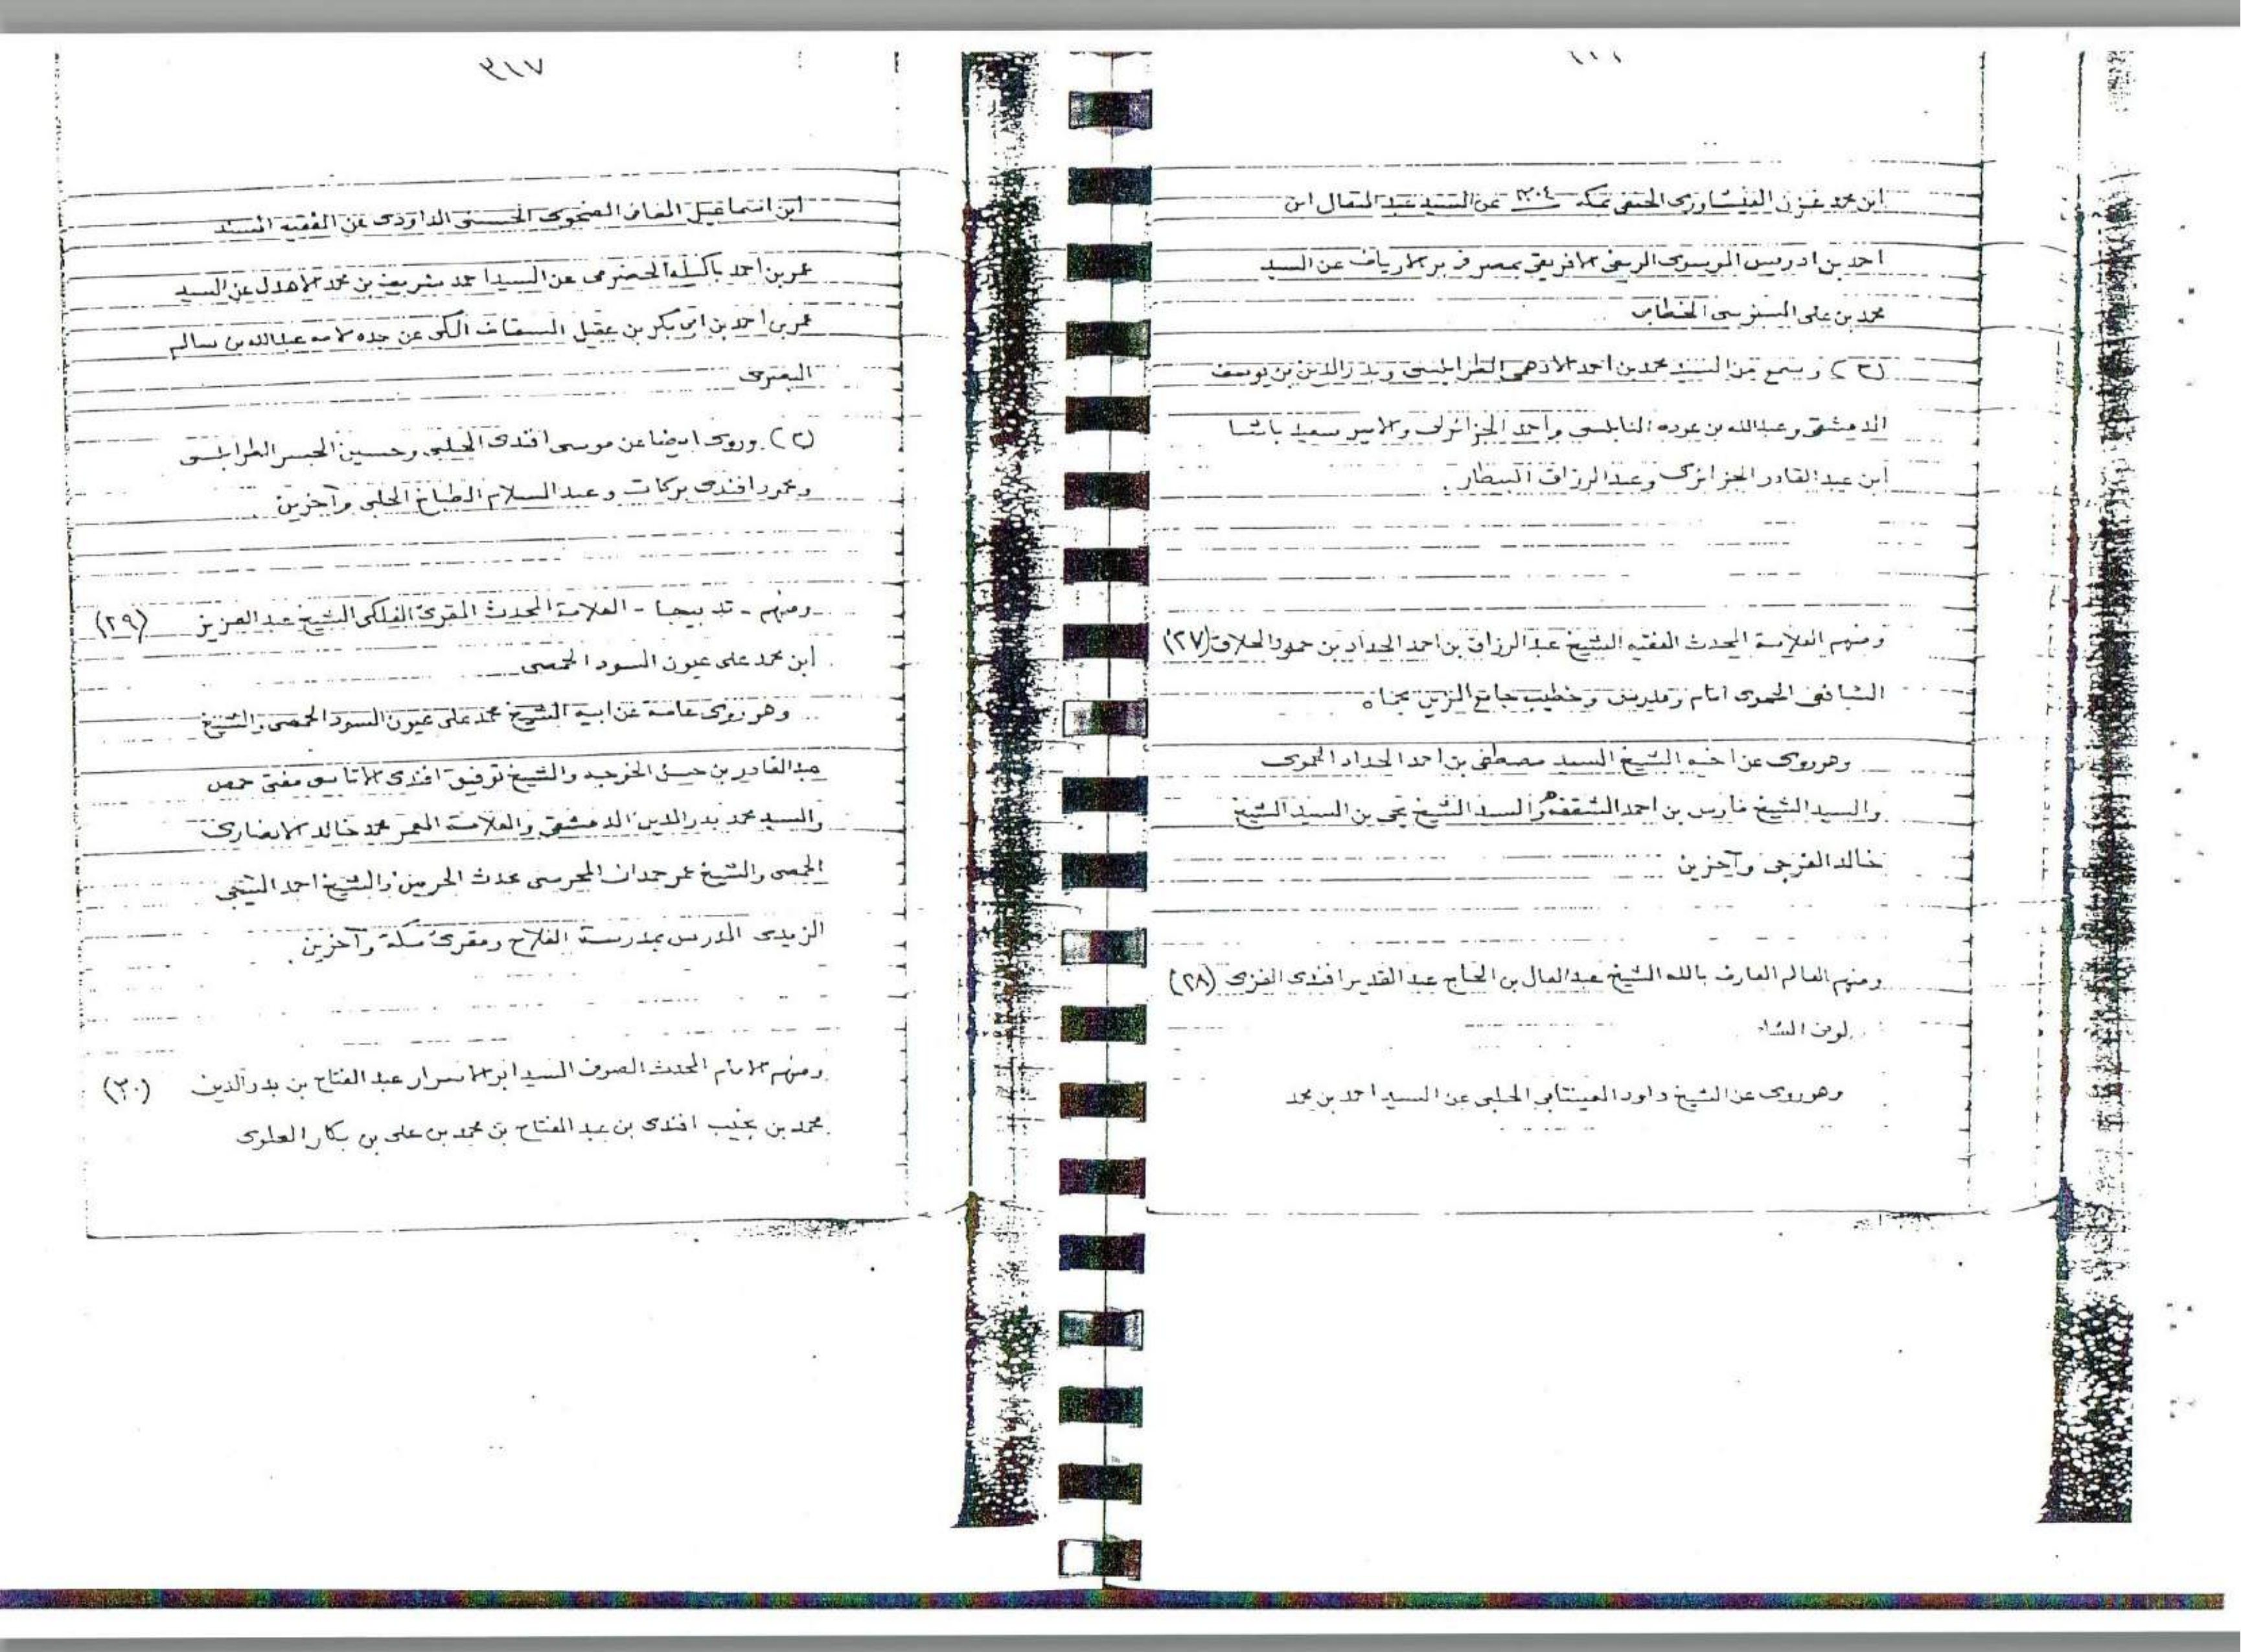 ابن محمد غزن الفيشاورى الحنفى بمكة ١٣٠٤ عن السيد عبد المتعال ابن
احمد بن ادريس الافريقى بمصر فى بر الارياف عن السيد
محمد بن على السنوسى الخطابى
(٢) وسمع من السيد محمد بن احمد الادهمى الطرابلسى وبدر الدين بن يوسف
الدمشقى وعبدالله بن عوده النابلسى واحمد الجزائرلى والامير سعيد باشا
ابن عبد القادر الجزائرى وعبد الرزاق البيطار .
ومنهم العلامة المحدث الفقيه الشيخ عبد الرزاق بن احمد الحداد بن حمود الحلاق (٢٧)
الشافعى الحموى امام ومدرس وخطيب جامع الزين بحماه
وهو روى عن اخيه الشيخ السيد مصطفى بن احمد الحداد الحموى
والسيد الشيخ فارس بن احمد الشقفه والسيد الشيخ يحى بن السيد الشيخ
خالد الفرجى وآخرين
ومنهم العالم العارف بالله الشيخ عبد العال بن الحاج عبد القدير افندى الغزى (٢٨)
وهو روى عن الشيخ داود العينتابى الحلبى عن السيد احمد بن محمد
٣١٧
ابن اسماعيل الحسنى الداودى عن الفقيه المسند
عمر بن احمد باكسله الحضرمى عن السيد احمد شريف بن محمد الاهدل عن السيد
عمر بن احمد بن ابى بكر بن عقيل السقاف المكى عن جده لامه عبدالله بن سالم
البصرى
(٢) وروى ايضا عن موسى افندى الحلبى وحسين الجسر الطرابلسى
ومحمود افندى بركات وعبد السلام الطباخ الحلبى وآخرين .
ومنهم - تدبيجا - العلامة المحدث المقرئ الفلكى الشيخ عبد العزيز (٢٩)
ابن محمد على عيون السود الحمصى
وهو روى عامة عن ابيه الشيخ محمد على عيون السود الحمصى والشيخ
عبد القادر بن حسن الخوجه والشيخ توفيق افندى الاتاسى مفتى حمص
والسيد محمد بدر الدين الدمشقى والعلامة المعمر محمد خالد الانصارى
الحمصى والشيخ عمر حمدان المحرسى محدث الحرمين والشيخ احمد التيجى
الزبيدى المدرس بمدرسة الفلاح ومقرئ مكة وآخرين .
ومنهم الامام المحدث الصوفى السيد ابو الاسرار عبد الفتاح بن بدر الدين (٣٠)
محمد بن نجيب افندى بن عبد الفتاح بن محمد بن على بن بكار العلوى